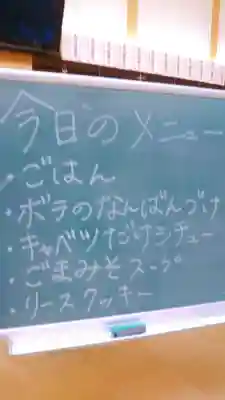 今日のメニュー
・ごはん
・ボラのなんばんづけ
・キャベツだけシチュー
・ごまみそスープ
・リースクッキー